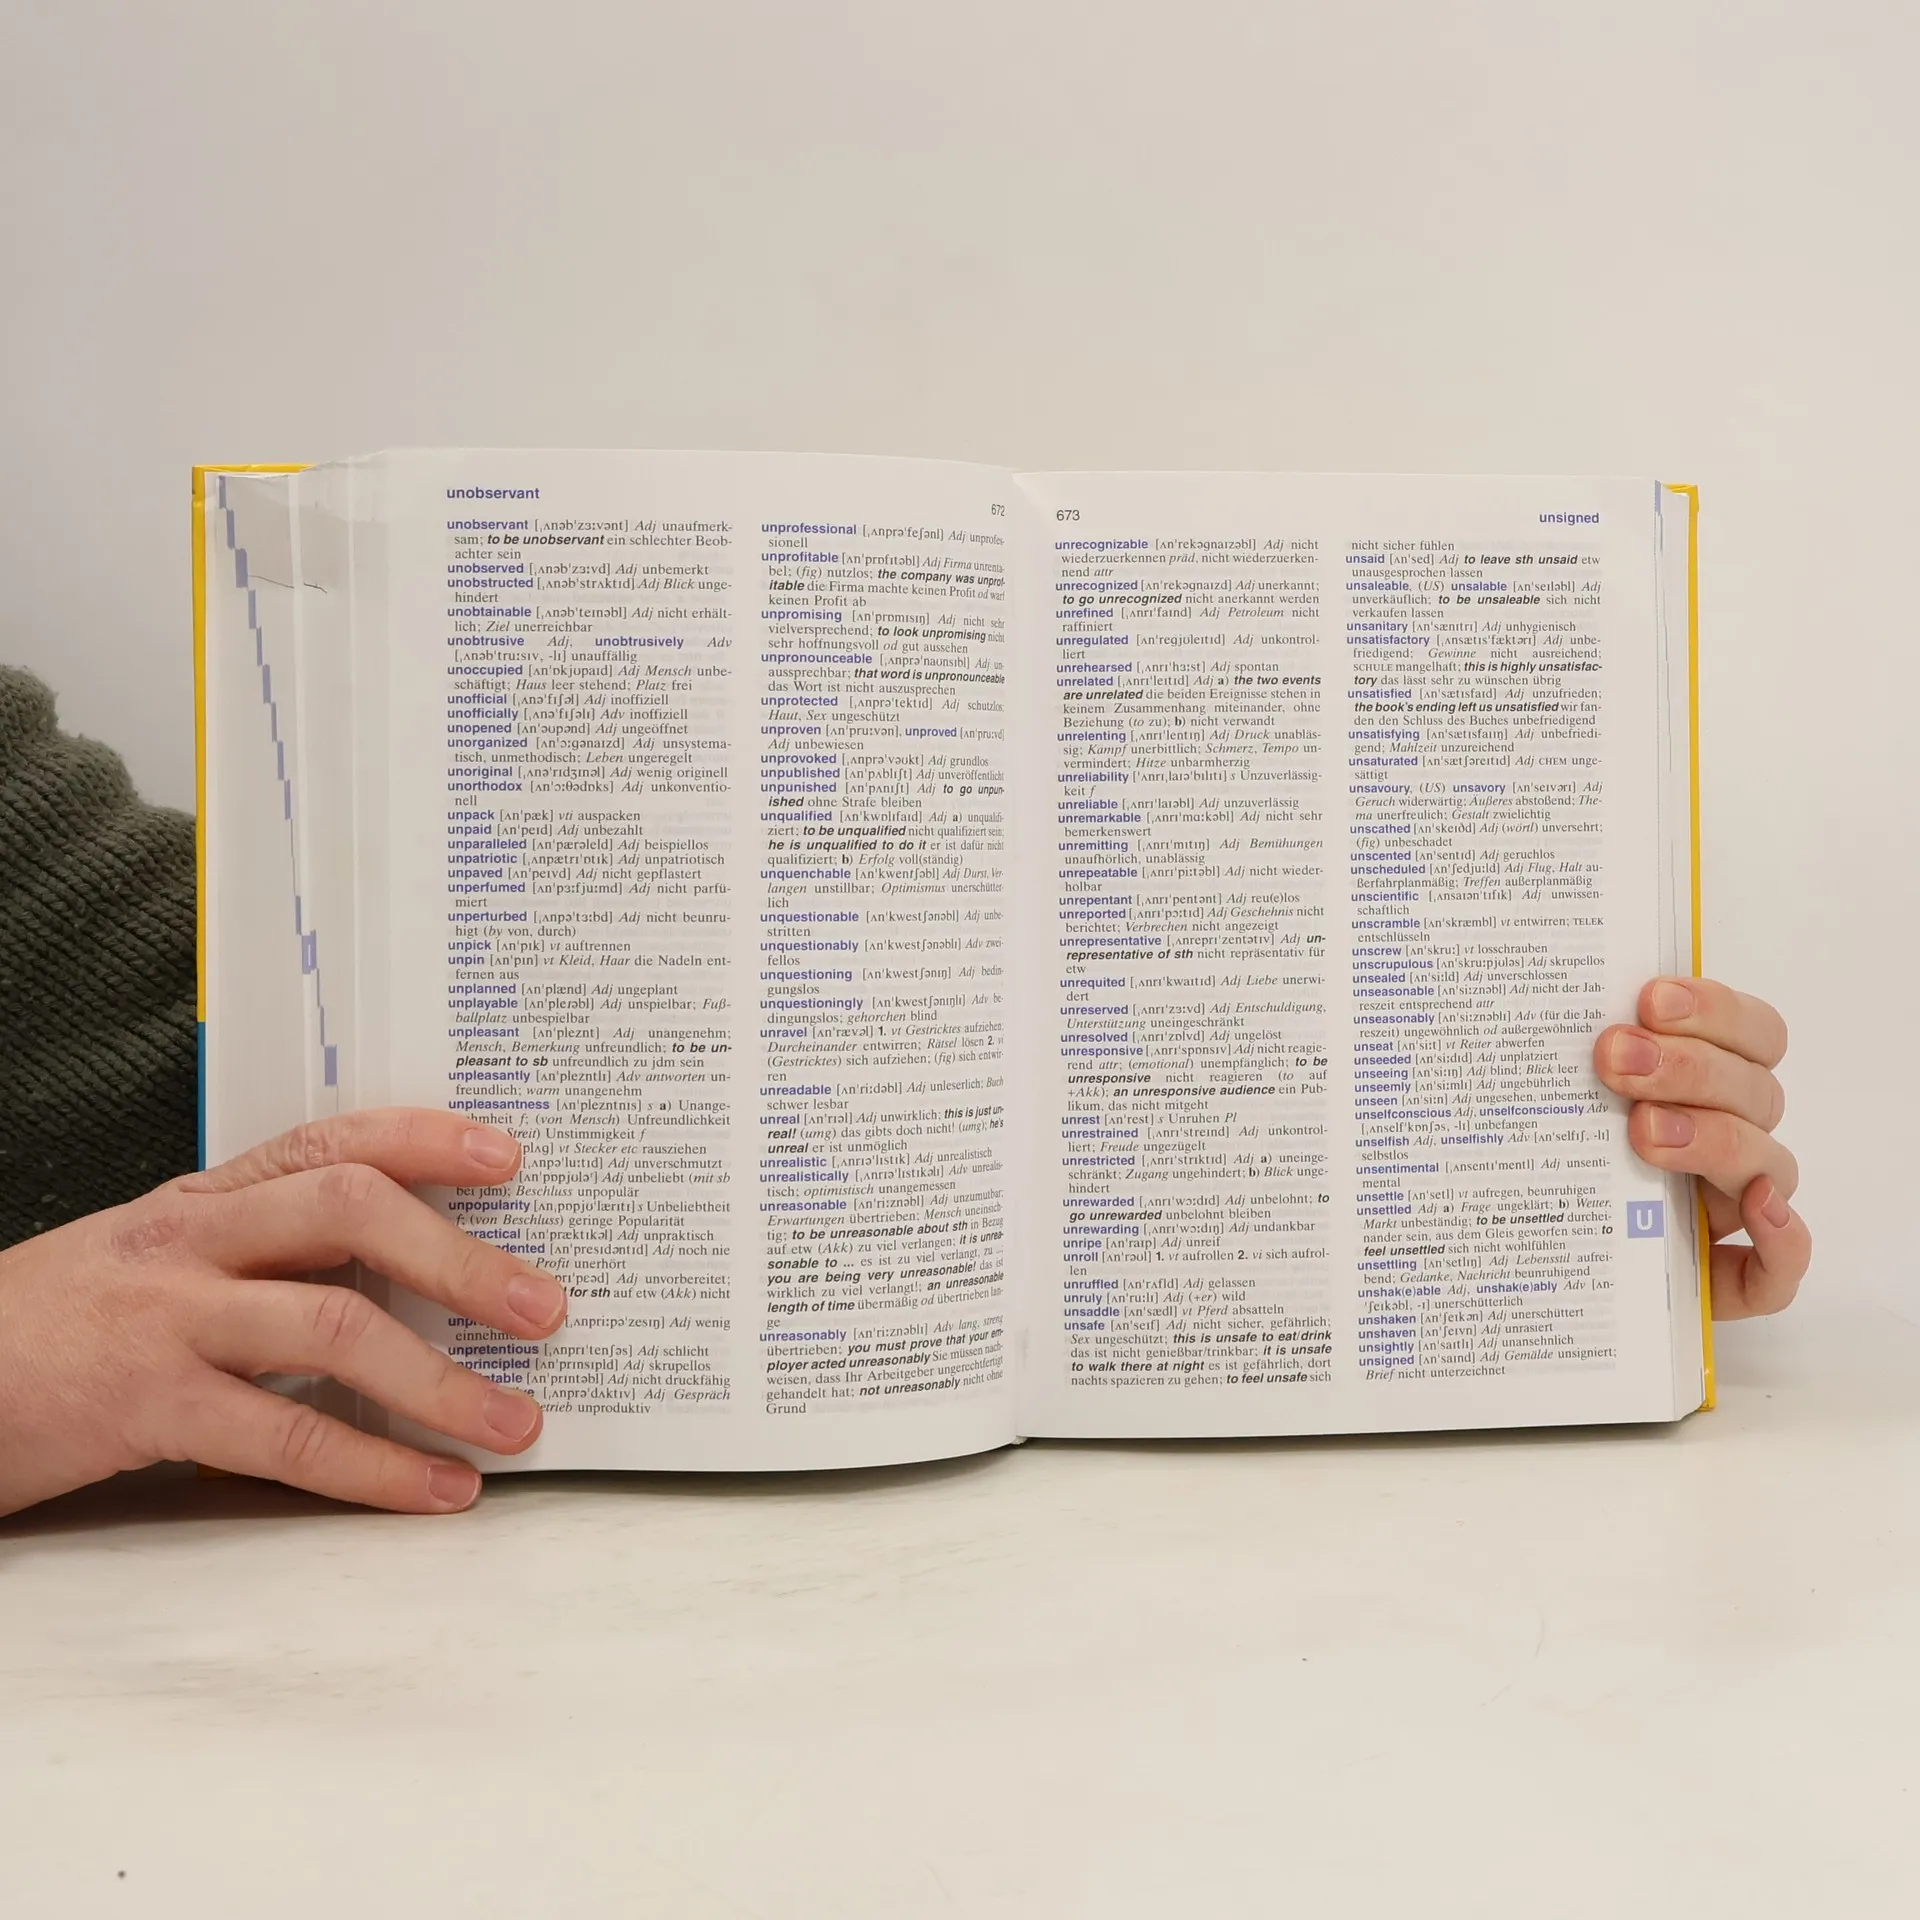 unobservant
672
unobservant [ˌʌnəbˈzɜːvənt] Adj unaufmerk-
sam; to be unobservant ein schlechter Beob-
achter sein
unobserved [ˌʌnəbˈzɜːvd] Adj unbemerkt
unobstructed [ˌʌnəbˈstrʌktɪd] Adj Blick unge-
hindert
unobtainable [ˌʌnəbˈteɪnəbl] Adj nicht erhält-
lich; Ziel unerreichbar
unobtrusive Adj, unobtrusively Adv
[ˌʌnəbˈtruːsɪv, -lɪ] unauffällig
unoccupied [ʌnˈɒkjʊpaɪd] Adj Mensch unbe-
schäftigt; Haus leer stehend; Platz frei
unofficial [ˌʌnəˈfɪʃəl] Adj inoffiziell
unofficially [ˌʌnəˈfɪʃəlɪ] Adv inoffiziell
unopened [ʌnˈəʊpənd] Adj ungeöffnet
unorganized [ʌnˈɔːgənaɪzd] Adj unsystema-
tisch, unmethodisch; Leben ungeregelt
unoriginal [ˌʌnəˈrɪdʒɪnəl] Adj wenig originell
unorthodox [ʌnˈɔːθədɒks] Adj unkonventio-
nell
unpack [ʌnˈpæk] vti auspacken
unpaid [ʌnˈpeɪd] Adj unbezahlt
unparalleled [ʌnˈpærəleld] Adj beispiellos
unpatriotic [ˌʌnpætrɪˈɒtɪk] Adj unpatriotisch
unpaved [ʌnˈpeɪvd] Adj nicht gepflastert
unperfumed [ʌnˈpɜːfjuːmd] Adj nicht parfü-
miert
unperturbed [ˌʌnpəˈtɜːbd] Adj nicht beunru-
higt (by von, durch)
unpick [ʌnˈpɪk] vt auftrennen
unpin [ʌnˈpɪn] vt Kleid, Haar die Nadeln ent-
fernen aus
unplanned [ʌnˈplænd] Adj ungeplant
unplayable [ʌnˈpleɪəbl] Adj unspielbar; Fuß-
ballplatz unbespielbar
unpleasant [ʌnˈpleznt] Adj unangenehm;
Mensch, Bemerkung unfreundlich; to be un-
pleasant to sb unfreundlich zu jdm sein
unpleasantly [ʌnˈplezntlɪ] Adv antworten un-
freundlich; warm unangenehm
unpleasantness [ʌnˈplezntnɪs] s a) Unange-
nehmheit f; (von Mensch) Unfreundlichkeit
Streit) Unstimmigkeit f
plʌg] vt Stecker etc rausziehen
[ˌʌnpəˈluːtɪd] Adj unverschmutzt
[ʌnˈpɒpjʊləʳ] Adj unbeliebt (mit sb
bei jdm); Beschluss unpopulär
unpopularity [ʌnˌpɒpjʊˈlærɪtɪ] s Unbeliebtheit
f; (von Beschluss) geringe Popularität
practical [ʌnˈpræktɪkəl] Adj unpraktisch
dented [ʌnˈpresɪdəntɪd] Adj noch nie
Profit unerhört
prɪˈpeəd] Adj unvorbereitet;
for sth auf etw (Akk) nicht
[ˌʌnpriːpəˈzesɪŋ] Adj wenig
einnehm
unpretentious [ˌʌnprɪˈtenʃəs] Adj schlicht
principled [ʌnˈprɪnsɪpld] Adj skrupellos
table [ʌnˈprɪntəbl] Adj nicht druckfähig
[ˌʌnprəˈdʌktɪv] Adj Gespräch
etrieb unproduktiv
unprofessional [ˌʌnprəˈfeʃənl] Adj unprofes-
sionell
unprofitable [ʌnˈprɒfɪtəbl] Adj Firma unrenta-
bel; (fig) nutzlos; the company was unprof-
itable die Firma machte keinen Profit od warf
keinen Profit ab
unpromising [ʌnˈprɒmɪsɪŋ] Adj nicht sehr
vielversprechend; to look unpromising nicht
sehr hoffnungsvoll od gut aussehen
unpronounceable [ˌʌnprəˈnaʊnsɪbl] Adj un-
aussprechbar; that word is unpronounceable
das Wort ist nicht auszusprechen
unprotected [ˌʌnprəˈtektɪd] Adj schutzlos;
Haut, Sex ungeschützt
unproven [ʌnˈpruːvən], unproved [ʌnˈpruːvd]
Adj unbewiesen
unprovoked [ˌʌnprəˈvəʊkt] Adj grundlos
unpublished [ʌnˈpʌblɪʃt] Adj unveröffentlicht
unpunished [ʌnˈpʌnɪʃt] Adj to go unpun-
ished ohne Strafe bleiben
unqualified [ʌnˈkwɒlɪfaɪd] Adj a) unqualifi-
ziert; to be unqualified nicht qualifiziert sein;
he is unqualified to do it er ist dafür nicht
qualifiziert; b) Erfolg voll(ständig)
unquenchable [ʌnˈkwentʃəbl] Adj Durst, Ver-
langen unstillbar; Optimismus unerschütter-
lich
unquestionable [ʌnˈkwestʃənəbl] Adj unbe-
stritten
unquestionably [ʌnˈkwestʃənəblɪ] Adv zwei-
fellos
unquestioning [ʌnˈkwestʃənɪŋ] Adj bedin-
gungslos
unquestioningly [ʌnˈkwestʃənɪŋlɪ] Adv be-
dingungslos; gehorchen blind
unravel [ʌnˈrævəl] 1. vt Gestricktes aufziehen;
Durcheinander entwirren; Rätsel lösen 2. vi
(Gestricktes) sich aufziehen; (fig) sich entwir-
ren
unreadable [ʌnˈriːdəbl] Adj unleserlich; Buch
schwer lesbar
unreal [ʌnˈrɪəl] Adj unwirklich; this is just un-
real! (umg) das gibts doch nicht! (umg); he's
unreal er ist unmöglich
unrealistic [ˌʌnrɪəˈlɪstɪk] Adj unrealistisch
unrealistically [ˌʌnrɪəˈlɪstɪkəlɪ] Adv unrealis-
tisch; optimistisch unangemessen
unreasonable [ʌnˈriːznəbl] Adj unzumutbar;
Erwartungen übertrieben; Mensch uneinsich-
tig; to be unreasonable about sth in Bezug
auf etw (Akk) zu viel verlangen; it is unrea-
sonable to ... es ist zu viel verlangt, zu ...;
you are being very unreasonable! das ist
wirklich zu viel verlangt!; an unreasonable
length of time übermäßig od übertrieben lan-
ge
unreasonably [ʌnˈriːznəblɪ] Adv lang, streng
übertrieben; you must prove that your em-
ployer acted unreasonably Sie müssen nach-
weisen, dass Ihr Arbeitgeber ungerechtfertigt
gehandelt hat; not unreasonably nicht ohne
Grund
673
unsigned
unrecognizable [ʌnˈrekəgnaɪzəbl] Adj nicht
wiederzuerkennen präd, nicht wiederzuerken-
nend attr
unrecognized [ʌnˈrekəgnaɪzd] Adj unerkannt;
to go unrecognized nicht anerkannt werden
unrefined [ˌʌnrɪˈfaɪnd] Adj Petroleum nicht
raffiniert
unregulated [ʌnˈregjʊleɪtɪd] Adj unkontrol-
liert
unrehearsed [ˌʌnrɪˈhɜːst] Adj spontan
unrelated [ˌʌnrɪˈleɪtɪd] Adj a) the two events
are unrelated die beiden Ereignisse stehen in
keinem Zusammenhang miteinander, ohne
Beziehung (to zu); b) nicht verwandt
unrelenting [ˌʌnrɪˈlentɪŋ] Adj Druck unabläs-
sig; Kampf unerbittlich; Schmerz, Tempo un-
vermindert; Hitze unbarmherzig
unreliability [ˈʌnrɪˌlaɪəˈbɪlɪtɪ] s Unzuverlässig-
keit f
unreliable [ˌʌnrɪˈlaɪəbl] Adj unzuverlässig
unremarkable [ˌʌnrɪˈmɑːkəbl] Adj nicht sehr
bemerkenswert
unremitting [ˌʌnrɪˈmɪtɪŋ] Adj Bemühungen
unaufhörlich, unablässig
unrepeatable [ˌʌnrɪˈpiːtəbl] Adj nicht wieder-
holbar
unrepentant [ˌʌnrɪˈpentənt] Adj reu(e)los
unreported [ˌʌnrɪˈpɔːtɪd] Adj Geschehnis nicht
berichtet; Verbrechen nicht angezeigt
unrepresentative [ˌʌnreprɪˈzentətɪv] Adj un-
representative of sth nicht repräsentativ für
etw
unrequited [ˌʌnrɪˈkwaɪtɪd] Adj Liebe unerwi-
dert
unreserved [ˌʌnrɪˈzɜːvd] Adj Entschuldigung,
Unterstützung uneingeschränkt
unresolved [ˌʌnrɪˈzɒlvd] Adj ungelöst
unresponsive [ˌʌnrɪˈspɒnsɪv] Adj nicht reagie-
rend attr; (emotional) unempfänglich; to be
unresponsive nicht reagieren (to auf
+Akk); an unresponsive audience ein Pub-
likum, das nicht mitgeht
unrest [ʌnˈrest] s Unruhen Pl
unrestrained [ˌʌnrɪˈstreɪnd] Adj unkontrol-
liert; Freude ungezügelt
unrestricted [ˌʌnrɪˈstrɪktɪd] Adj a) uneinge-
schränkt; Zugang ungehindert; b) Blick unge-
hindert
unrewarded [ˌʌnrɪˈwɔːdɪd] Adj unbelohnt; to
go unrewarded unbelohnt bleiben
unrewarding [ˌʌnrɪˈwɔːdɪŋ] Adj undankbar
unripe [ʌnˈraɪp] Adj unreif
unroll [ʌnˈrəʊl] 1. vt aufrollen 2. vi sich aufrol-
len
unruffled [ʌnˈrʌfld] Adj gelassen
unruly [ʌnˈruːlɪ] Adj (+er) wild
unsaddle [ʌnˈsædl] vt Pferd absatteln
unsafe [ʌnˈseɪf] Adj nicht sicher, gefährlich;
Sex ungeschützt; this is unsafe to eat/drink
das ist nicht genießbar/trinkbar; it is unsafe
to walk there at night es ist gefährlich, dort
nachts spazieren zu gehen; to feel unsafe sich
nicht sicher fühlen
unsaid [ʌnˈsed] Adj to leave sth unsaid etw
unausgesprochen lassen
unsaleable, (US) unsalable [ʌnˈseɪləbl] Adj
unverkäuflich; to be unsaleable sich nicht
verkaufen lassen
unsanitary [ʌnˈsænɪtrɪ] Adj unhygienisch
unsatisfactory [ˌʌnsætɪsˈfæktərɪ] Adj unbe-
friedigend; Gewinne nicht ausreichend;
SCHULE mangelhaft; this is highly unsatisfac-
tory das lässt sehr zu wünschen übrig
unsatisfied [ʌnˈsætɪsfaɪd] Adj unzufrieden;
the book's ending left us unsatisfied wir fan-
den den Schluss des Buches unbefriedigend
unsatisfying [ʌnˈsætɪsfaɪɪŋ] Adj unbefriedi-
gend; Mahlzeit unzureichend
unsaturated [ʌnˈsætʃəreɪtɪd] Adj CHEM unge-
sättigt
unsavoury, (US) unsavory [ʌnˈseɪvərɪ] Adj
Geruch widerwärtig; Äußeres abstoßend; The-
ma unerfreulich; Gestalt zwielichtig
unscathed [ʌnˈskeɪðd] Adj (wörtl) unversehrt;
(fig) unbeschadet
unscented [ʌnˈsentɪd] Adj geruchlos
unscheduled [ʌnˈʃedjuːld] Adj Flug, Halt au-
ßerfahrplanmäßig; Treffen außerplanmäßig
unscientific [ˌʌnsaɪənˈtɪfɪk] Adj unwissen-
schaftlich
unscramble [ʌnˈskræmbl] vt entwirren; TELEK
entschlüsseln
unscrew [ʌnˈskruː] vt losschrauben
unscrupulous [ʌnˈskruːpjʊləs] Adj skrupellos
unsealed [ʌnˈsiːld] Adj unverschlossen
unseasonable [ʌnˈsiːznəbl] Adj nicht der Jah-
reszeit entsprechend attr
unseasonably [ʌnˈsiːznəblɪ] Adv (für die Jah-
reszeit) ungewöhnlich od außergewöhnlich
unseat [ʌnˈsiːt] vt Reiter abwerfen
unseeded [ʌnˈsiːdɪd] Adj unplatziert
unseeing [ʌnˈsiːɪŋ] Adj blind; Blick leer
unseemly [ʌnˈsiːmlɪ] Adj ungebührlich
unseen [ʌnˈsiːn] Adj ungesehen, unbemerkt
unselfconscious Adj, unselfconsciously Adv
[ˌʌnselfˈkɒnʃəs, -lɪ] unbefangen
unselfish Adj, unselfishly Adv [ʌnˈselfɪʃ, -lɪ]
selbstlos
unsentimental [ˌʌnsentɪˈmentl] Adj unsenti-
mental
unsettle [ʌnˈsetl] vt aufregen, beunruhigen
unsettled Adj a) Frage ungeklärt; b) Wetter,
Markt unbeständig; to be unsettled durchei-
nander sein, aus dem Gleis geworfen sein; to
feel unsettled sich nicht wohlfühlen
unsettling [ʌnˈsetlɪŋ] Adj Lebensstil aufrei-
bend; Gedanke, Nachricht beunruhigend
unshak(e)able Adj, unshak(e)ably Adv [ʌn-
ˈʃeɪkəbl, -ɪ] unerschütterlich
unshaken [ʌnˈʃeɪkən] Adj unerschüttert
unshaven [ʌnˈʃeɪvn] Adj unrasiert
unsightly [ʌnˈsaɪtlɪ] Adj unansehnlich
unsigned [ʌnˈsaɪnd] Adj Gemälde unsigniert;
Brief nicht unterzeichnet
U